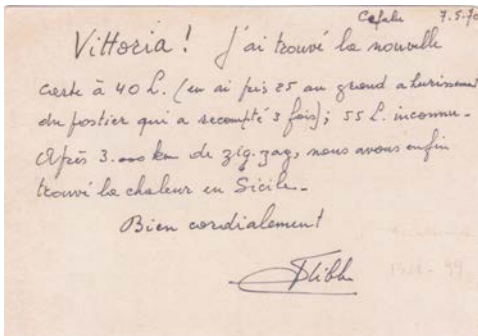 Cefalu 7.5.70
Vittoria! J'ai trouvé la nouvelle
carte à 40 L. (en ai pris 25 au grand ahurissement
du postier qui a recompté 3 fois); 55 L. inconnu.
Après 3.000 km de zig-zag, nous avons enfin
trouvé la chaleur en Sicile.
Bien cordialement